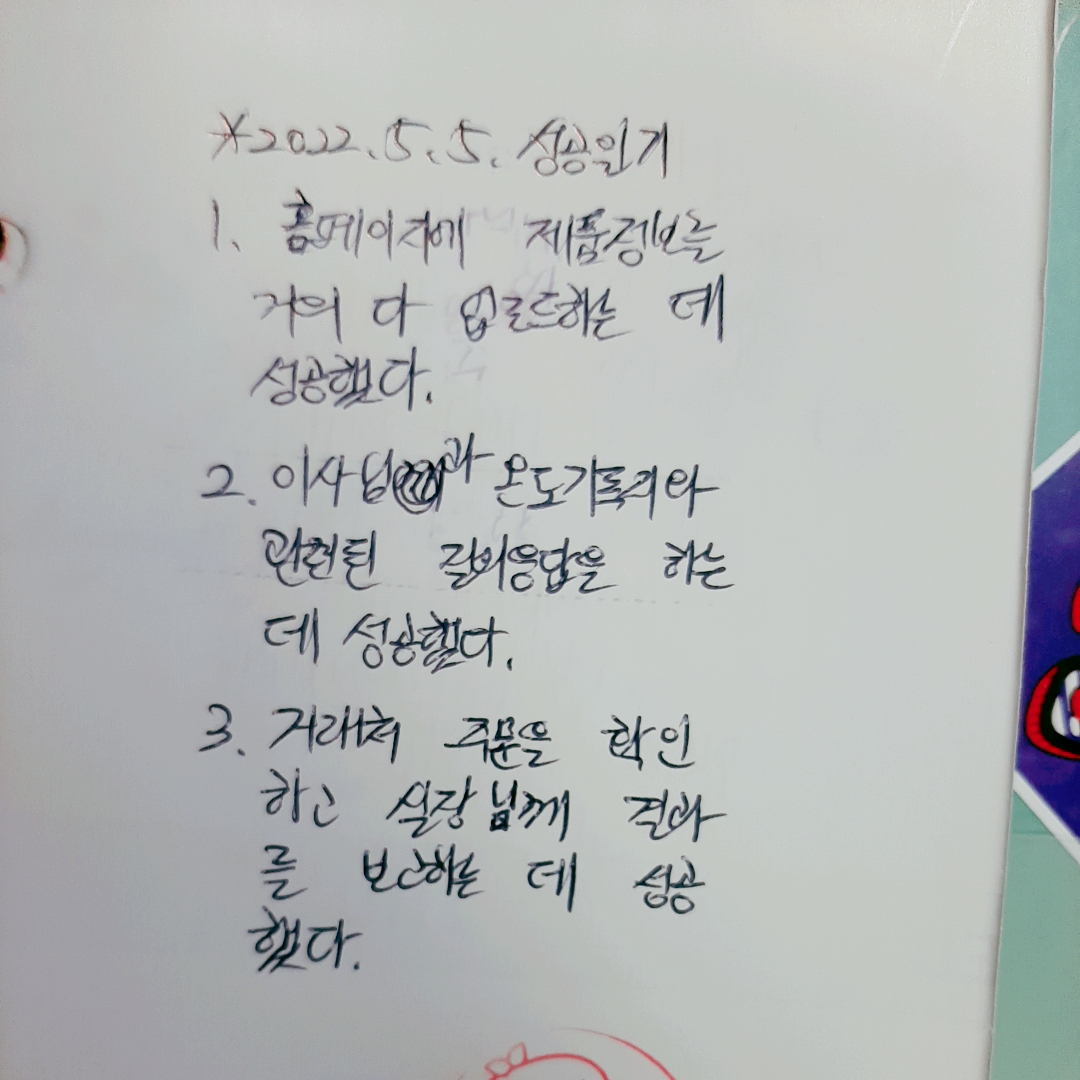 *2022.5.5. 성공일기
1. 홈페이지에 제품정보를
거의 다 업로드하는 데
성공했다.
2. 이사님과 온도기록기와
관련된 질의응답을 하는
데 성공했다.
3. 거래처 주문을 확인
하고 실장님께 결과
를 보고하는 데 성공
했다.